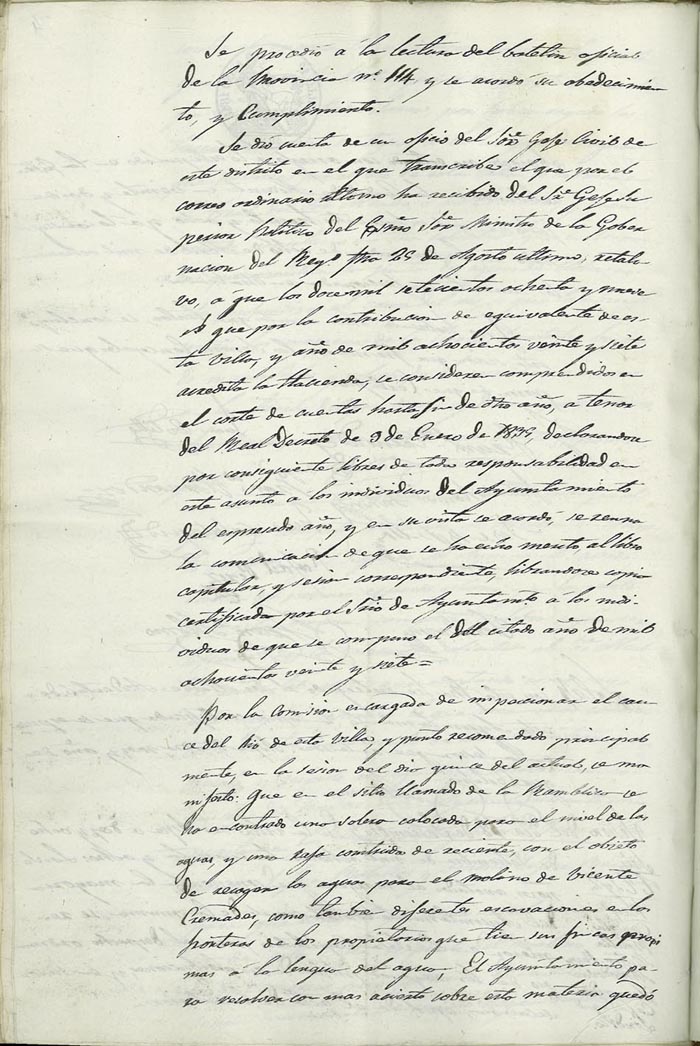 Se procedió á la lectura del boletin oficial
de la Provincia nº 114 y se acordó su obedecimien-
to, y Cumplimiento.
Se dió cuenta de un oficio del Sor. Gefe Civil de
este distrito en el que transcribe el que por el
correo ordinario ultimo ha recibido del Sr. Gefe Su
perior Politico del Exmo Sor. Ministro de la Gober
nacion del Reyno fha 25 de Agosto ultimo, relati-
vo, á que los doce mil setecientos ochenta y nueve
que por la contribucion de equivalente de es-
ta villa, y año de mil ochocientos veinte y siete
acredita la Hacienda, se consideren comprendidos en
el corte de cuentas hasta fin de dho año, a tenor
del Real Decreto de 3 de Enero de declarandose
por consiguiente libres de toda responsabilidad en
este asunto a los individuos del Ayuntamiento
del espresado año, y en su vista se acordó, se reuna
la comunicacion de que se ha echo merito, al libro
capitular, y sesion correspondiente, librandose copia
certificada por el Srio de Ayuntamto. á los indi-
viduos de que se compuso el del citado año de mil
ochocientos veinte y siete =
Por la Comision encargada de inspeccionar el cau-
ce del Rió de esta Villa, y punto recomendado principal
mente, en la sesion del dia quince del actual, se ma
nifestó: Que en el sitio llamado de la Ramblica se
ha encontrado una solera colocada para el nivel de las
aguas, y una rafa contruida de reciente, con el objeto
de recoger los aguas para el molino de Vicente
Cremades, como tanbie diferetes escavaciones en los
fronteras de los propietarios que tien sus fincas procsi
mas á la lengua del agua, El Ayuntamiento pa-
ra resolver con mas acierto sobre esta materia quedó